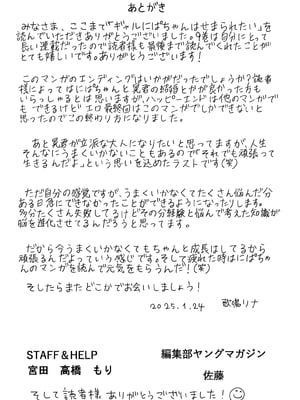 あとがき
みなさま、ここまで「ギャルにぱちゃんはせまられたい」を
読んでいただきありがとうございました。9巻は自分にとって
長い連載だったので読者様も最後まで読んでくれたことが
とても嬉しいです。ありがとうございます!
このマンガのエンディングはいかがだったでしょうか?読者
様によってはにぱちゃんと晃君の結婚とかが良かった方も
いらっしゃるとは思いますが、ハッピーエンドは他のマンガで
もできるけどエロ最終回はこのマンガでしかできないと
思ったのでこの終わり方になりました。
あと晃君が立派な大人になりたいと思ってますが、人生
そんなにうまくいかないこともあるので「それでも頑張って
生きるんだよ」という思いを込めたラストです(笑)
ただ自分の感覚ですが、うまくいかなくてたくさん悩んだ分
ある日急にできなかったことができるようになったりします。
多分たくさん失敗してるけどその分経験と悩んで考えた知識が
脳を進化させてるんだろうと思ってます。
だから今うまくいかなくてもちゃんと成長はしてるから
頑張るんだよっていう感じです。そして疲れた時はにぱちゃ
んのマンガを読んで元気をもらうんだ!(笑)
そしたらまたどこかでお会いしましょう!
2025.1.24 歌鳴リナ
STAFF&HELP
宮田 高橋 もり
編集部ヤングマガジン
佐藤
そして読者様ありがとうございました!